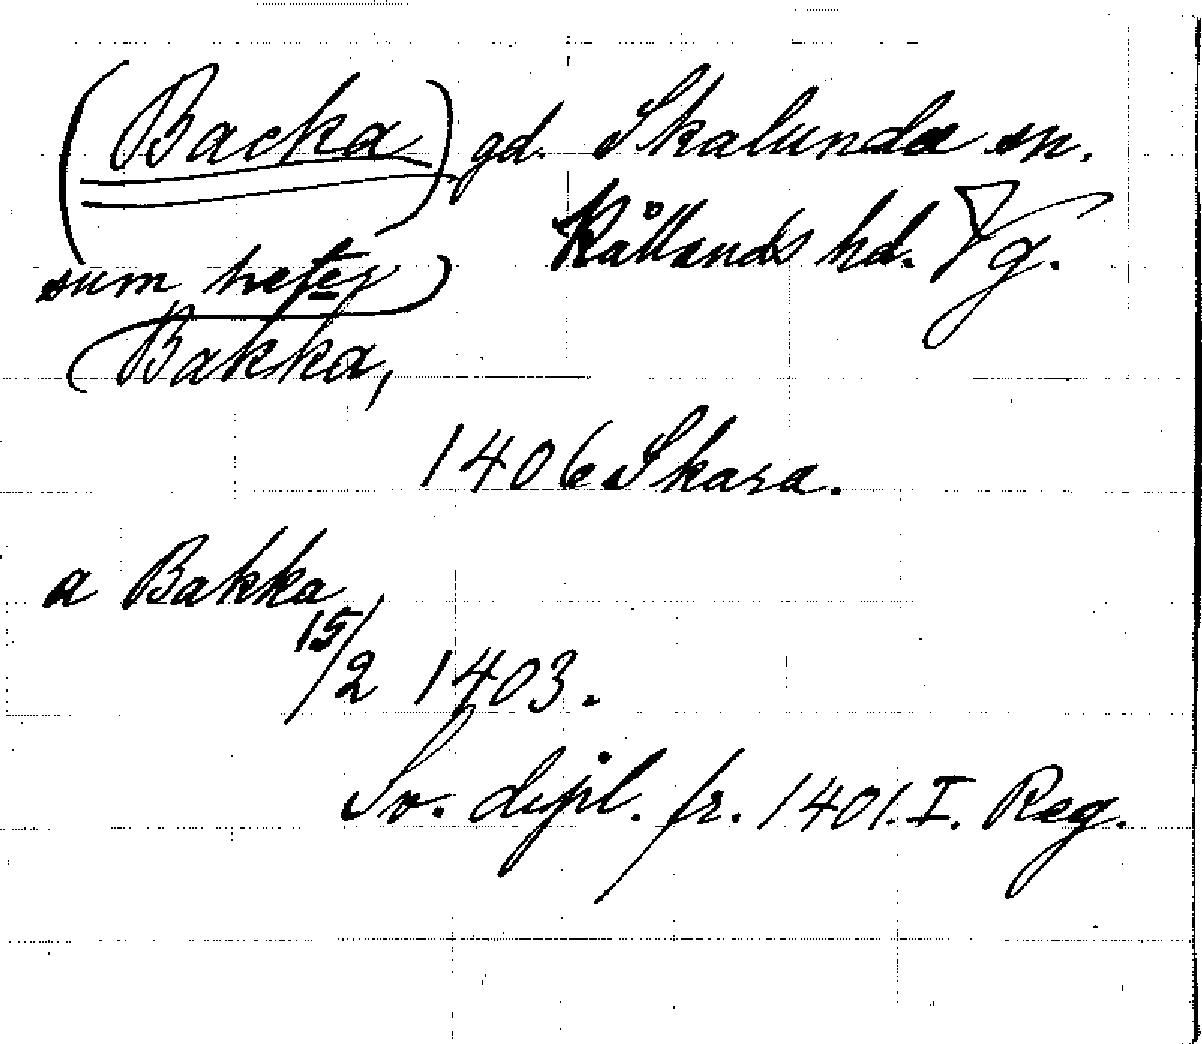 (Backa) gd. Skalunda sn.
Kållands hd. Vg.
sum heter)
(Bakka,
1406 Skara.
a Bakka
15/2 1403.
Sv. dipl. fr. 1401. I. Reg.